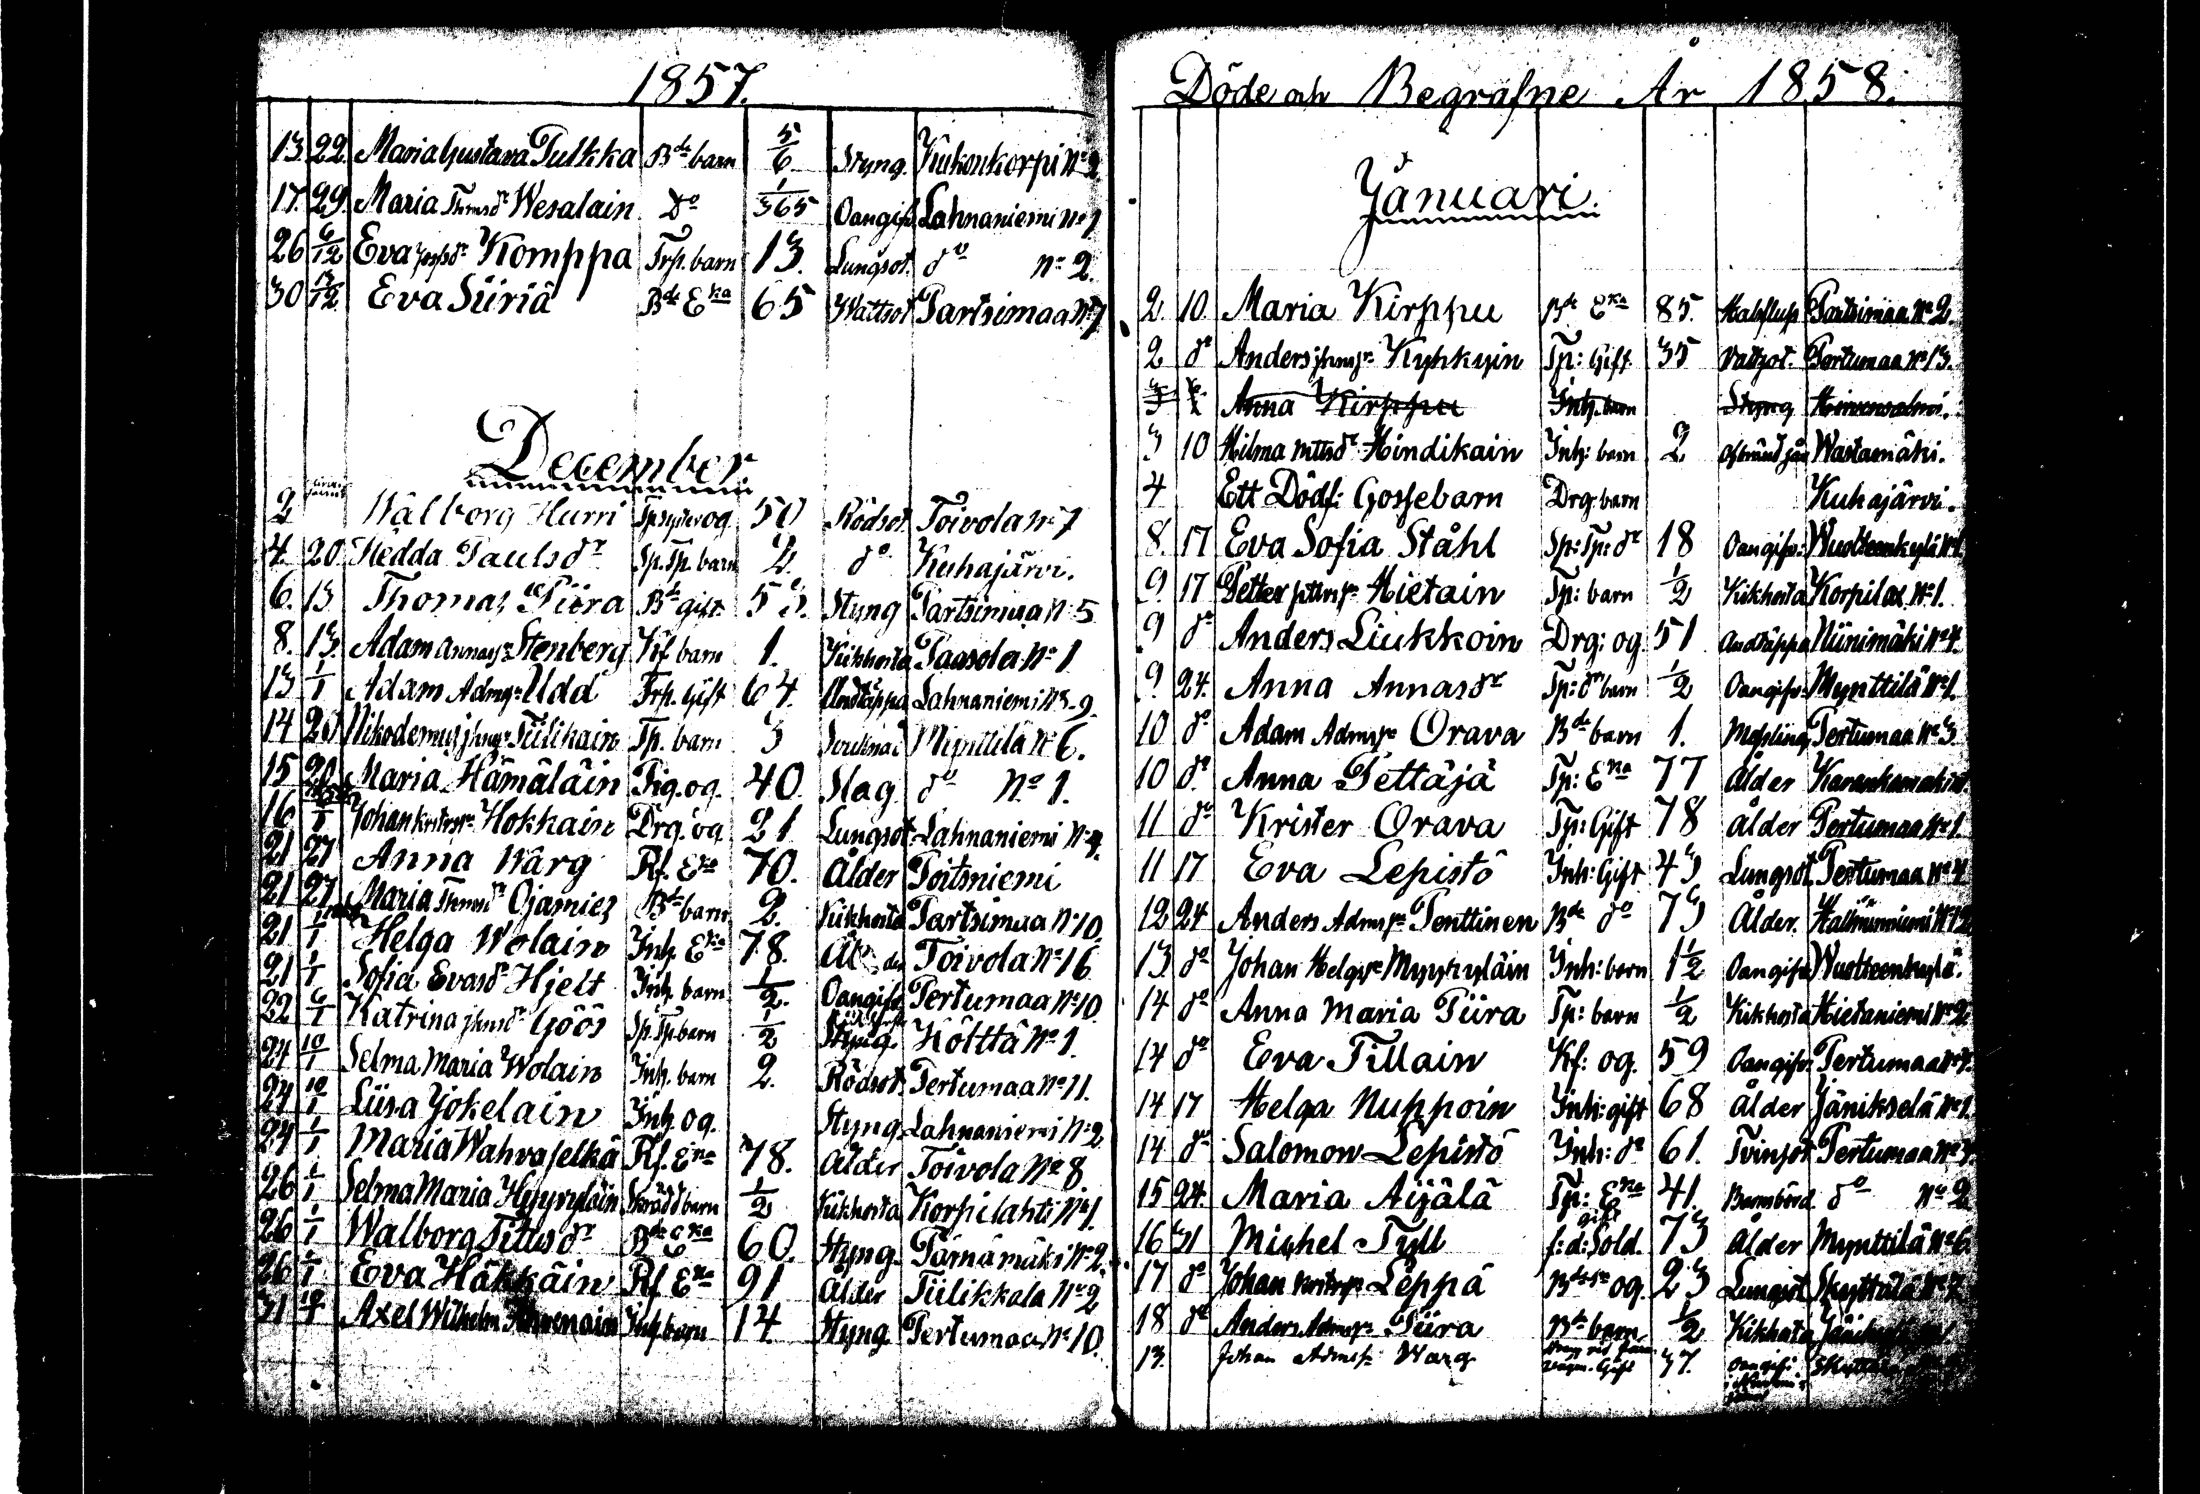 1857.
13. 22. Maria Gustava Pulkka Bde barn 5/6 Styng. Kukonkorpi No 2.
17. 29. Maria Thmsdr Wesalain Do 1/365 Oangifv. Lahnaniemi No 1
26 6/12 Eva Josefsdr Komppa Trp. barn 13. Lungsot. do No 2.
30 13/12 Eva Siiriä Bde Eka 65 Wattsot Partsimaa No 7
December.
2 Walborg Hurri Tp syster og. 50 Rödsot. Toivola No 7
4. 20. Hedda Paulsdr Sp. Tp. barn do Kuhajärvi.
6. 13 Thomas Piira Bde gift. 53. Styng Partsimaa No 5
8. 13. Adam Annas: Stenberg Kf barn 1. Kikhosta Paasola No 1
13 1/1 Adam Adms: Udd Trp. Gift 64. Andtäppa Lahnaniemi No 9.
14 20 Nikodemus Jhns: Tiilikain Tp. barn 3 Mynttilä No 6.
15 20 Maria Hämäläin Pig. og. 40. Slag do No 1.
16 /1 Johan Hokkain Drg. og. 21 Lungsot. Lahnaniemi No 4.
21 27 Anna Warg Rf. Eka 70. Ålder Poitsniemi
21 27 Maria Thmsdr Ojamies Bde barn 2. Kikhosta Partsimaa No 10.
21 1/1 Helga Wolain Inh. Eka 78. Ålder Toivola No 16
21 1/1 Sofia Evasdr Hjelt Inh. barn 1/2. Oangifv. Pertumaa No 10.
22 6/1 Katrina Jhnsdr Göös Sp. Tp. barn 1/2 Styng. Költtä No 1.
24 10/1 Selma Maria Wolain Inh. barn 2. Rödsot. Pertumaa No 11.
24 10/1 Liisa Jokelain Inh. og. Styng. Lahnaniemi No 2
24 1/1 Maria Wahvaselkä Rf. Eka 78. Ålder Toivola No 8.
26 /1 Selma Maria Hyyryläin Skrädd barn 1/2 Kikhosta Korpilahti No 1.
26 1/1 Walborg Pettsdr Bde Eka 60. Styng. Pärnämäki No 2.
26 /1 Eva Häkkäin Rf Eka 91 Ålder Tiilikkala No 2
31 10/1 Axel Wilhelm Inh. barn 14 Styng Pertumaa No 10.
Döde och Begrafne År 1858.
Januari.
2. 10. Maria Kirppu Bde Eka 85. Partsimaa No 2.
2 do Anders Jhns: Kyhkyin Tp: Gift. 35 Vattsot. Pertumaa No 13.
3 Anna Kirppu Inh. barn Styng
3 10 Hilma Mttsdr Hindikain Inh: barn 2 Wastamäki.
4 Ett Dödf: Gossebarn Drg: barn Kuhajärvi.
8. 17 Eva Sofia Ståhl Sp: Tp: dr 18 Oangifv: Wuolteenkylä No 1.
9 17 Petter Pttrs: Hietain Tp: barn 1/2 Kikhosta Korpilax. No 1.
9 do Anders Liukkoin Drg: og. 51 Andtäppa Niinimäki No 4.
9 24. Anna Annasdr Tp: dr barn 1/2 Oangifv: Mynttilä No 1.
10 do Adam Adms: Orava Bde barn 1. Messling Pertumaa No 3.
10 do Anna Pettäjä Tp: Eka 77 Ålder Karankamäki
11 do Krister Orava Tp: Gift 78 Ålder Pertumaa No 1.
11 17 Eva Lepistö Inh: Gift 43 Lungsot. Pertumaa No 4.
12 24 Anders Adms: Penttinen Bde do 73 Ålder. Hallmänniemi No 12
13 do Johan Helgs: Myyryläin Inh: barn 1 1/2 Oangifv. Wuolteenkylä.
14 do Anna Maria Piira Tp: barn 1/2 Kikhosta Hietaniemi No 2
14 do Eva Tillain Kf: og. 59 Oangifv: Pertumaa No 7.
14 17 Helga Nuppoin Inh: gift 68 Ålder Jänikselä No 1.
14 do Salomon Lepistö Inh: do 61. Tvinsot Pertumaa No 4.
15 24. Maria Aijälä Tp: Eka 41. Barnsbörd do No 2
16 31 Michel Tyll f: d: Sold. gift 73 Ålder Mynttilä No 6.
17 do Johan Leppä og. 23 Lungsot. Skyttälä No 7.
18 do Anders Adms: Piira Bde barn 1/2 Kikhosta
13. Johan Adms: Warg Gift 37. Oangifv: